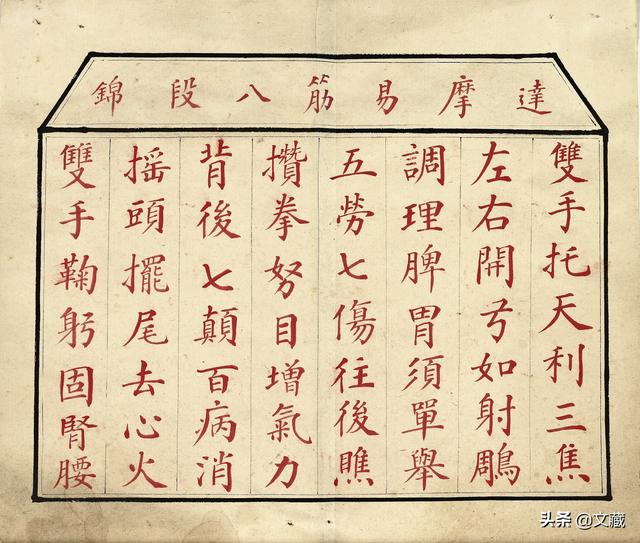 達摩易筋八段錦
雙手托天利三焦
左右開弓如射鵰
調理脾胃須單舉
五勞七傷往後瞧
攢拳努目增氣力
背後七顛百病消
搖頭擺尾去心火
雙手鞠躬固腎腰
头条 @文藏